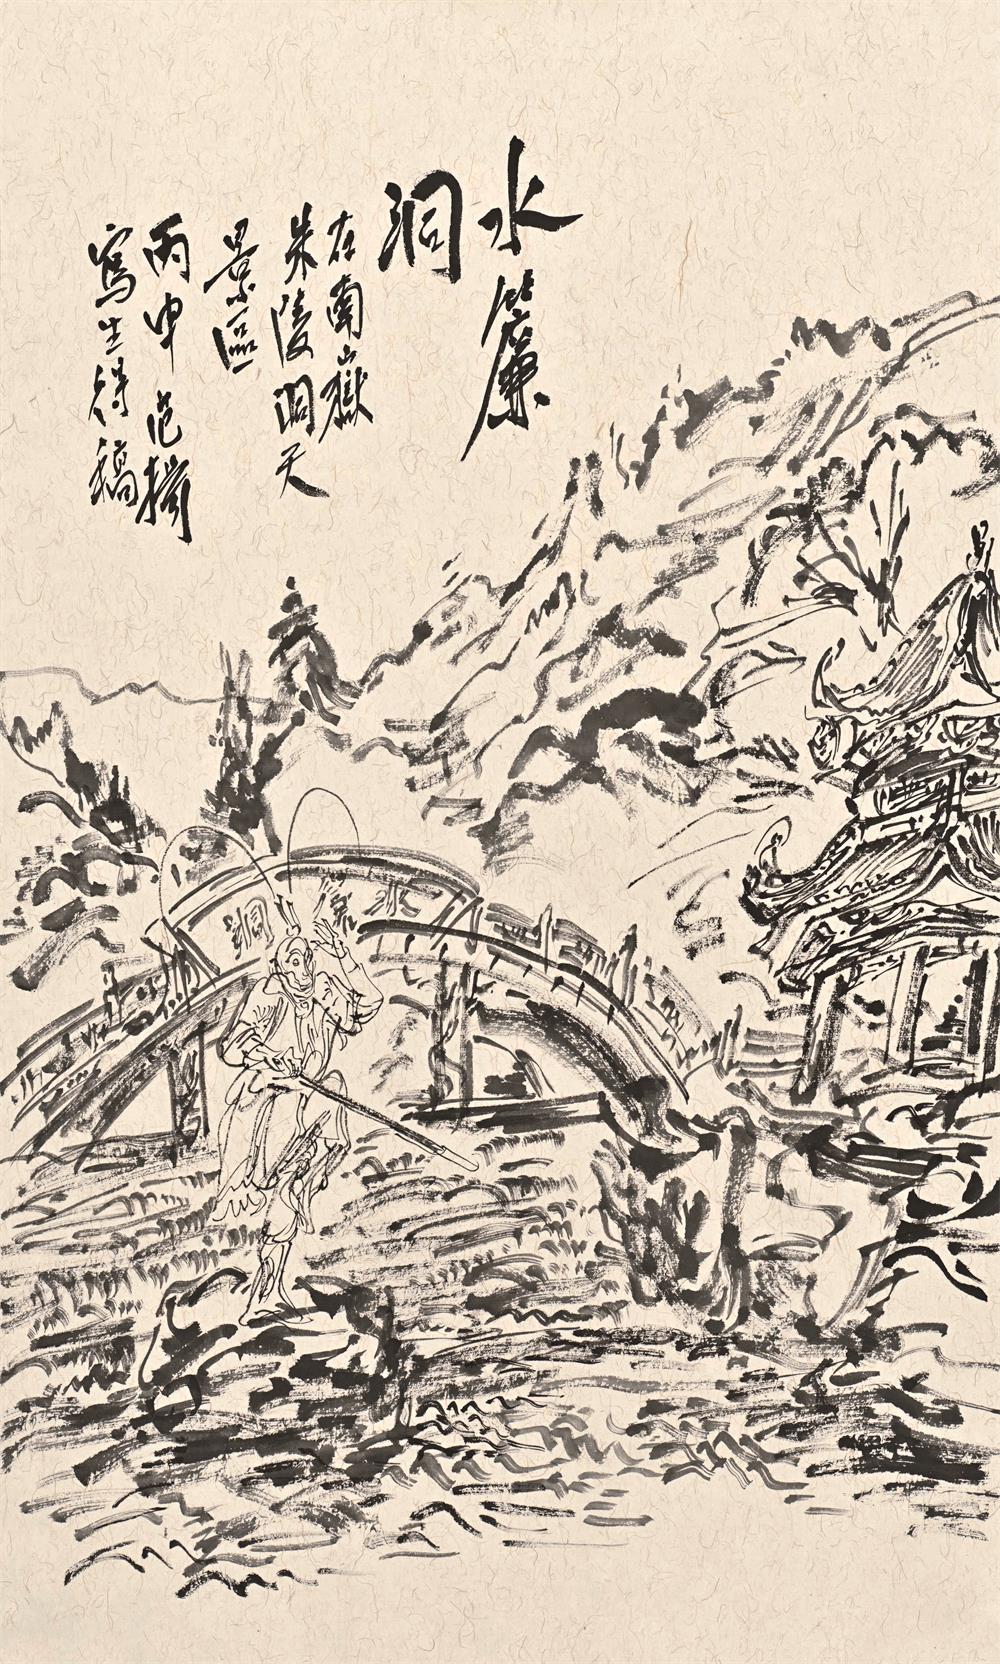 水簾
洞
在南嶽
朱陵洞天
景區
丙申范揚
寫生得稿
水簾洞